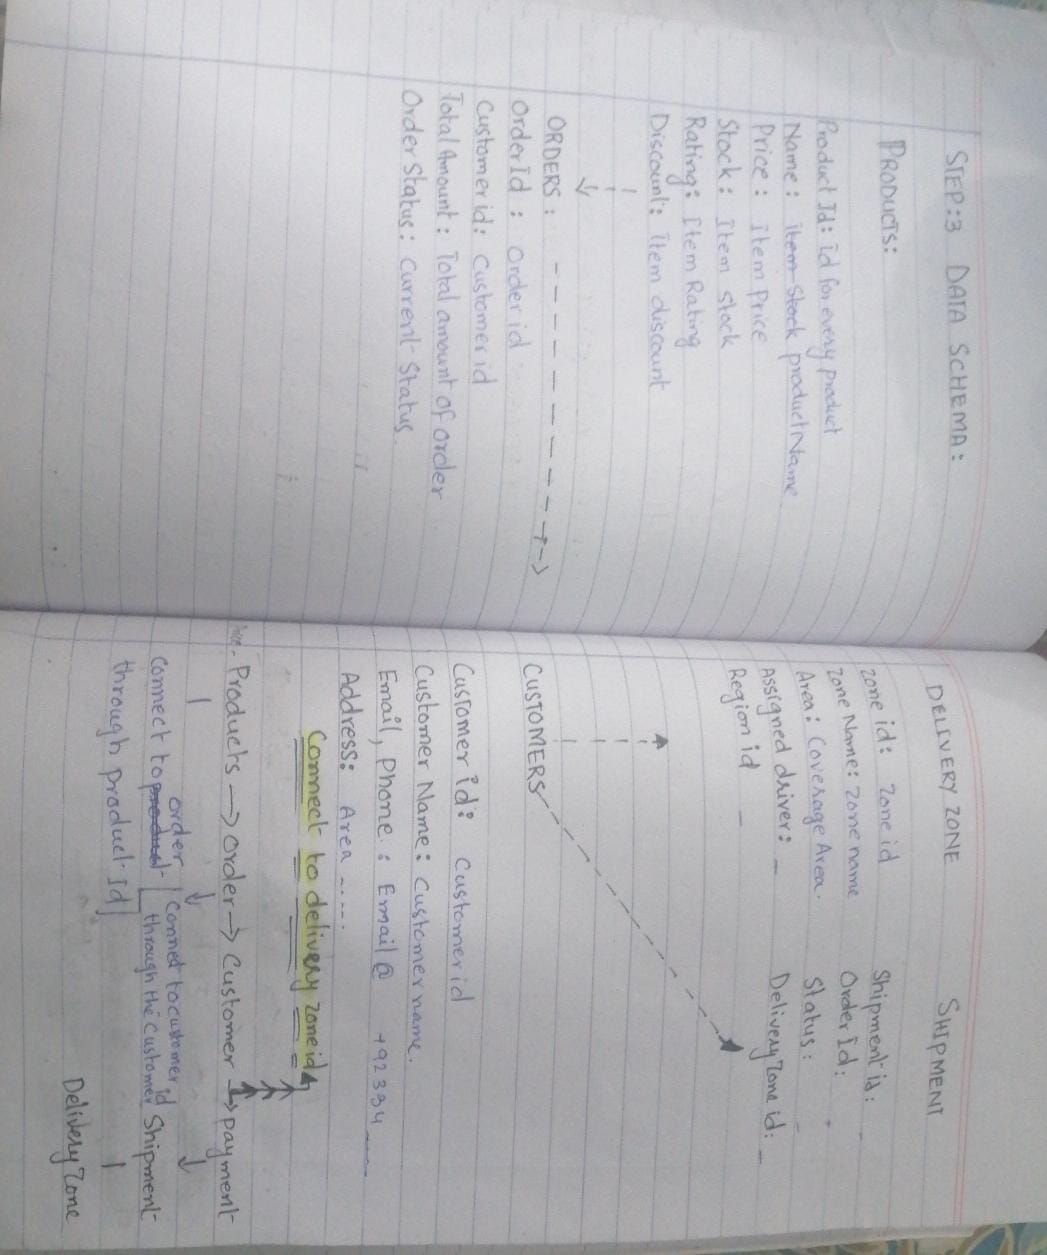 STEP:3 DATA SCHEMA:
PRODUCTS:
Product Id: id for every product
Name: item Stock productName
Price: item price
Stock: Item stock
Rating: Item Rating
Discount: item discount
ORDERS:
Order Id: Order id
Customer id: Customer id
Total Amount: Total amount of order
Order Status: Current Status
DELIVERY ZONE
zone id: Zone id
Zone Name: Zone name
Area: Coverage Area.
Assigned driver: -
Region id -
SHIPMENT
Shipment id: -
Order id: -
Status: -
Delivery Zone id: -
CUSTOMERS
Customer id: Customer id
Customer Name: Customer name.
Email, Phone: Email@ +92334 ____
Address: Area .....
Connect to delivery zone id
Products → Order → Customer → payment
order
connect to product
through product Id
Connect to customer id
through the Customer
Shipment
Delivery Zone